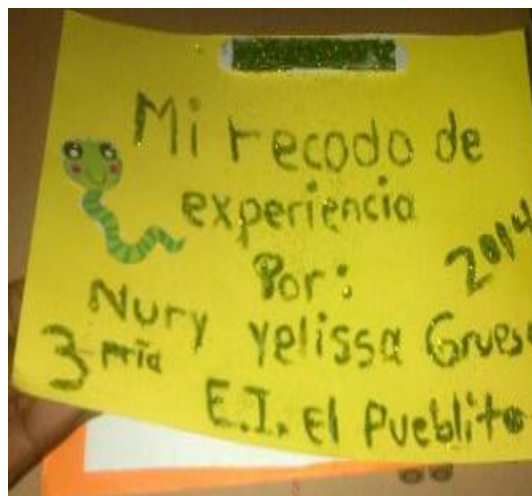 Mi recodo de
experiencia
Por:
2014
Nury Yelissa Grues
3 mria
E.I. El Pueblito